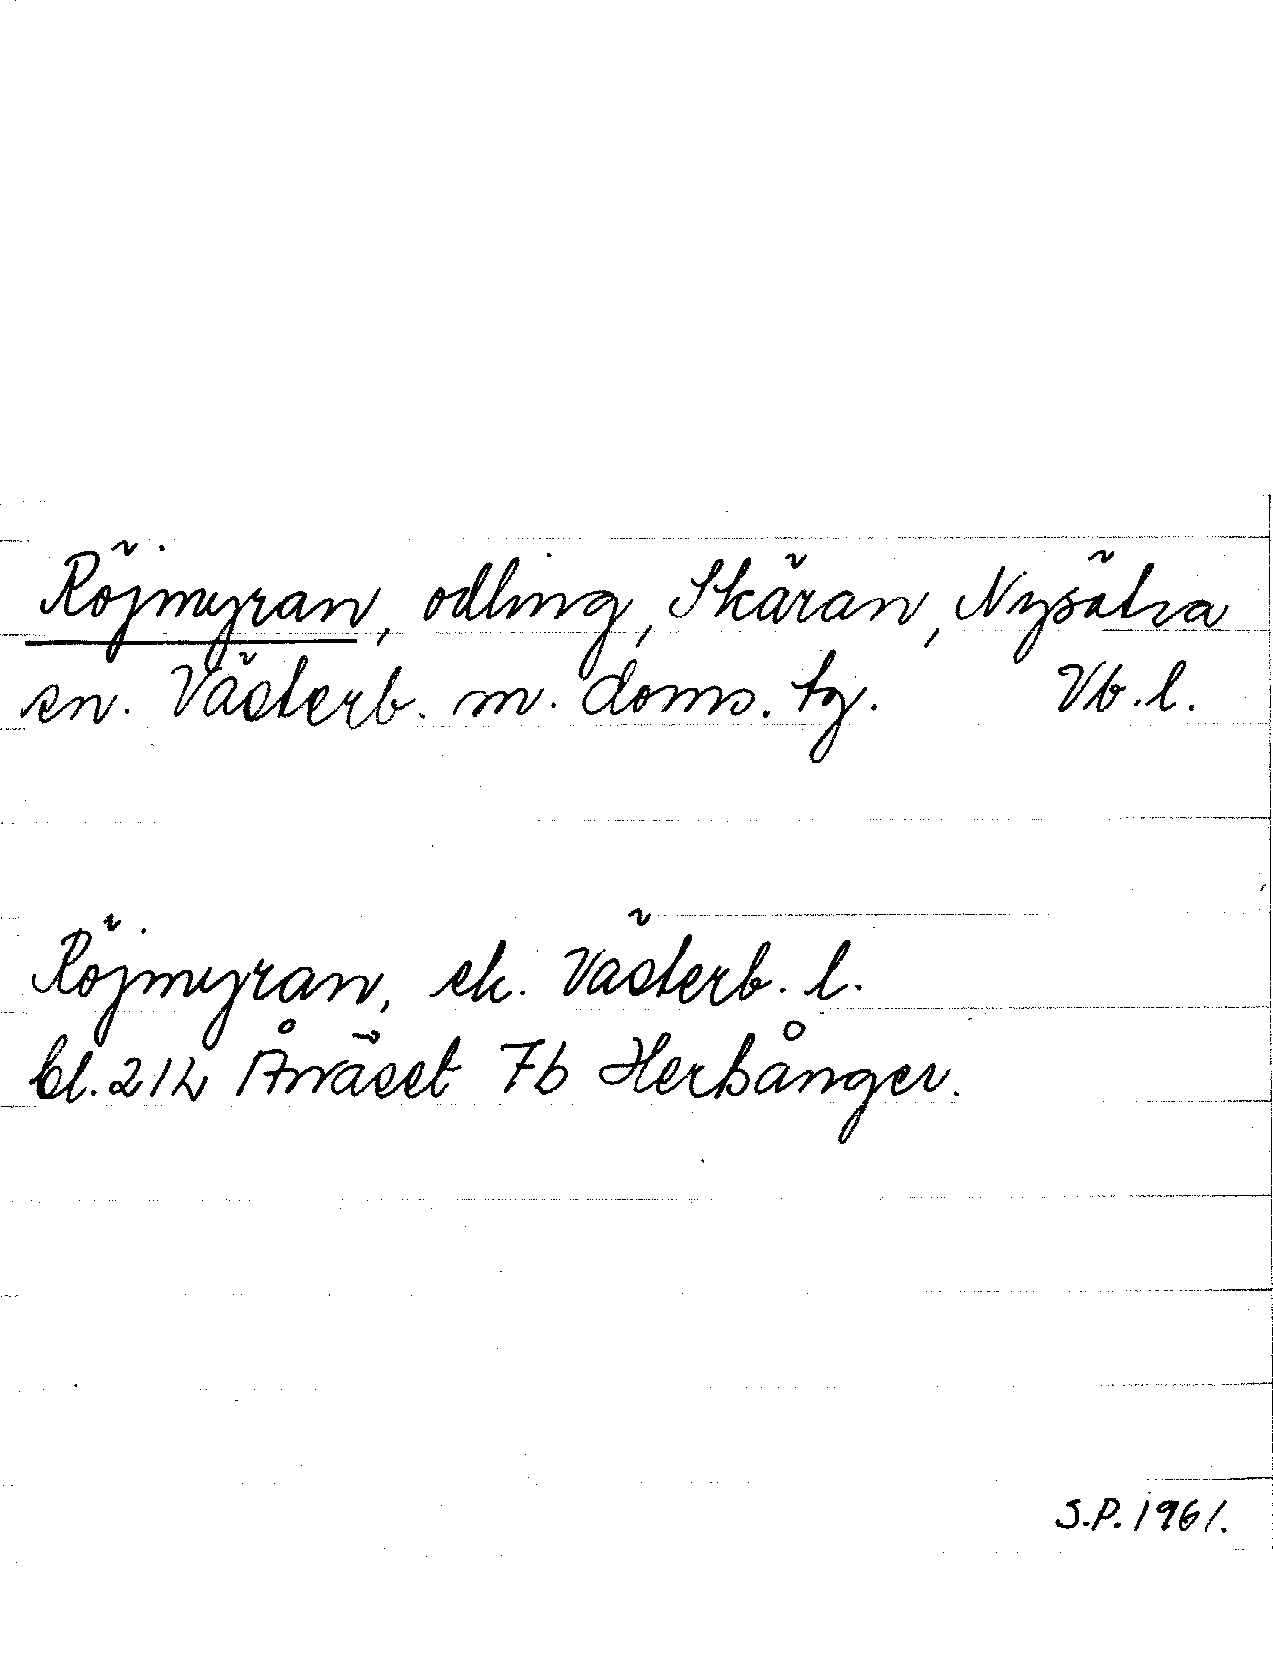 Röjmyran, odling, Skäran, Nysätra
sn. Västerb. m. doms. tg. Vb.l.
Röjmyran, ek. Västerb. l.
bl. 21L Ånäset 7b Herrånger.
S.P. 1961.